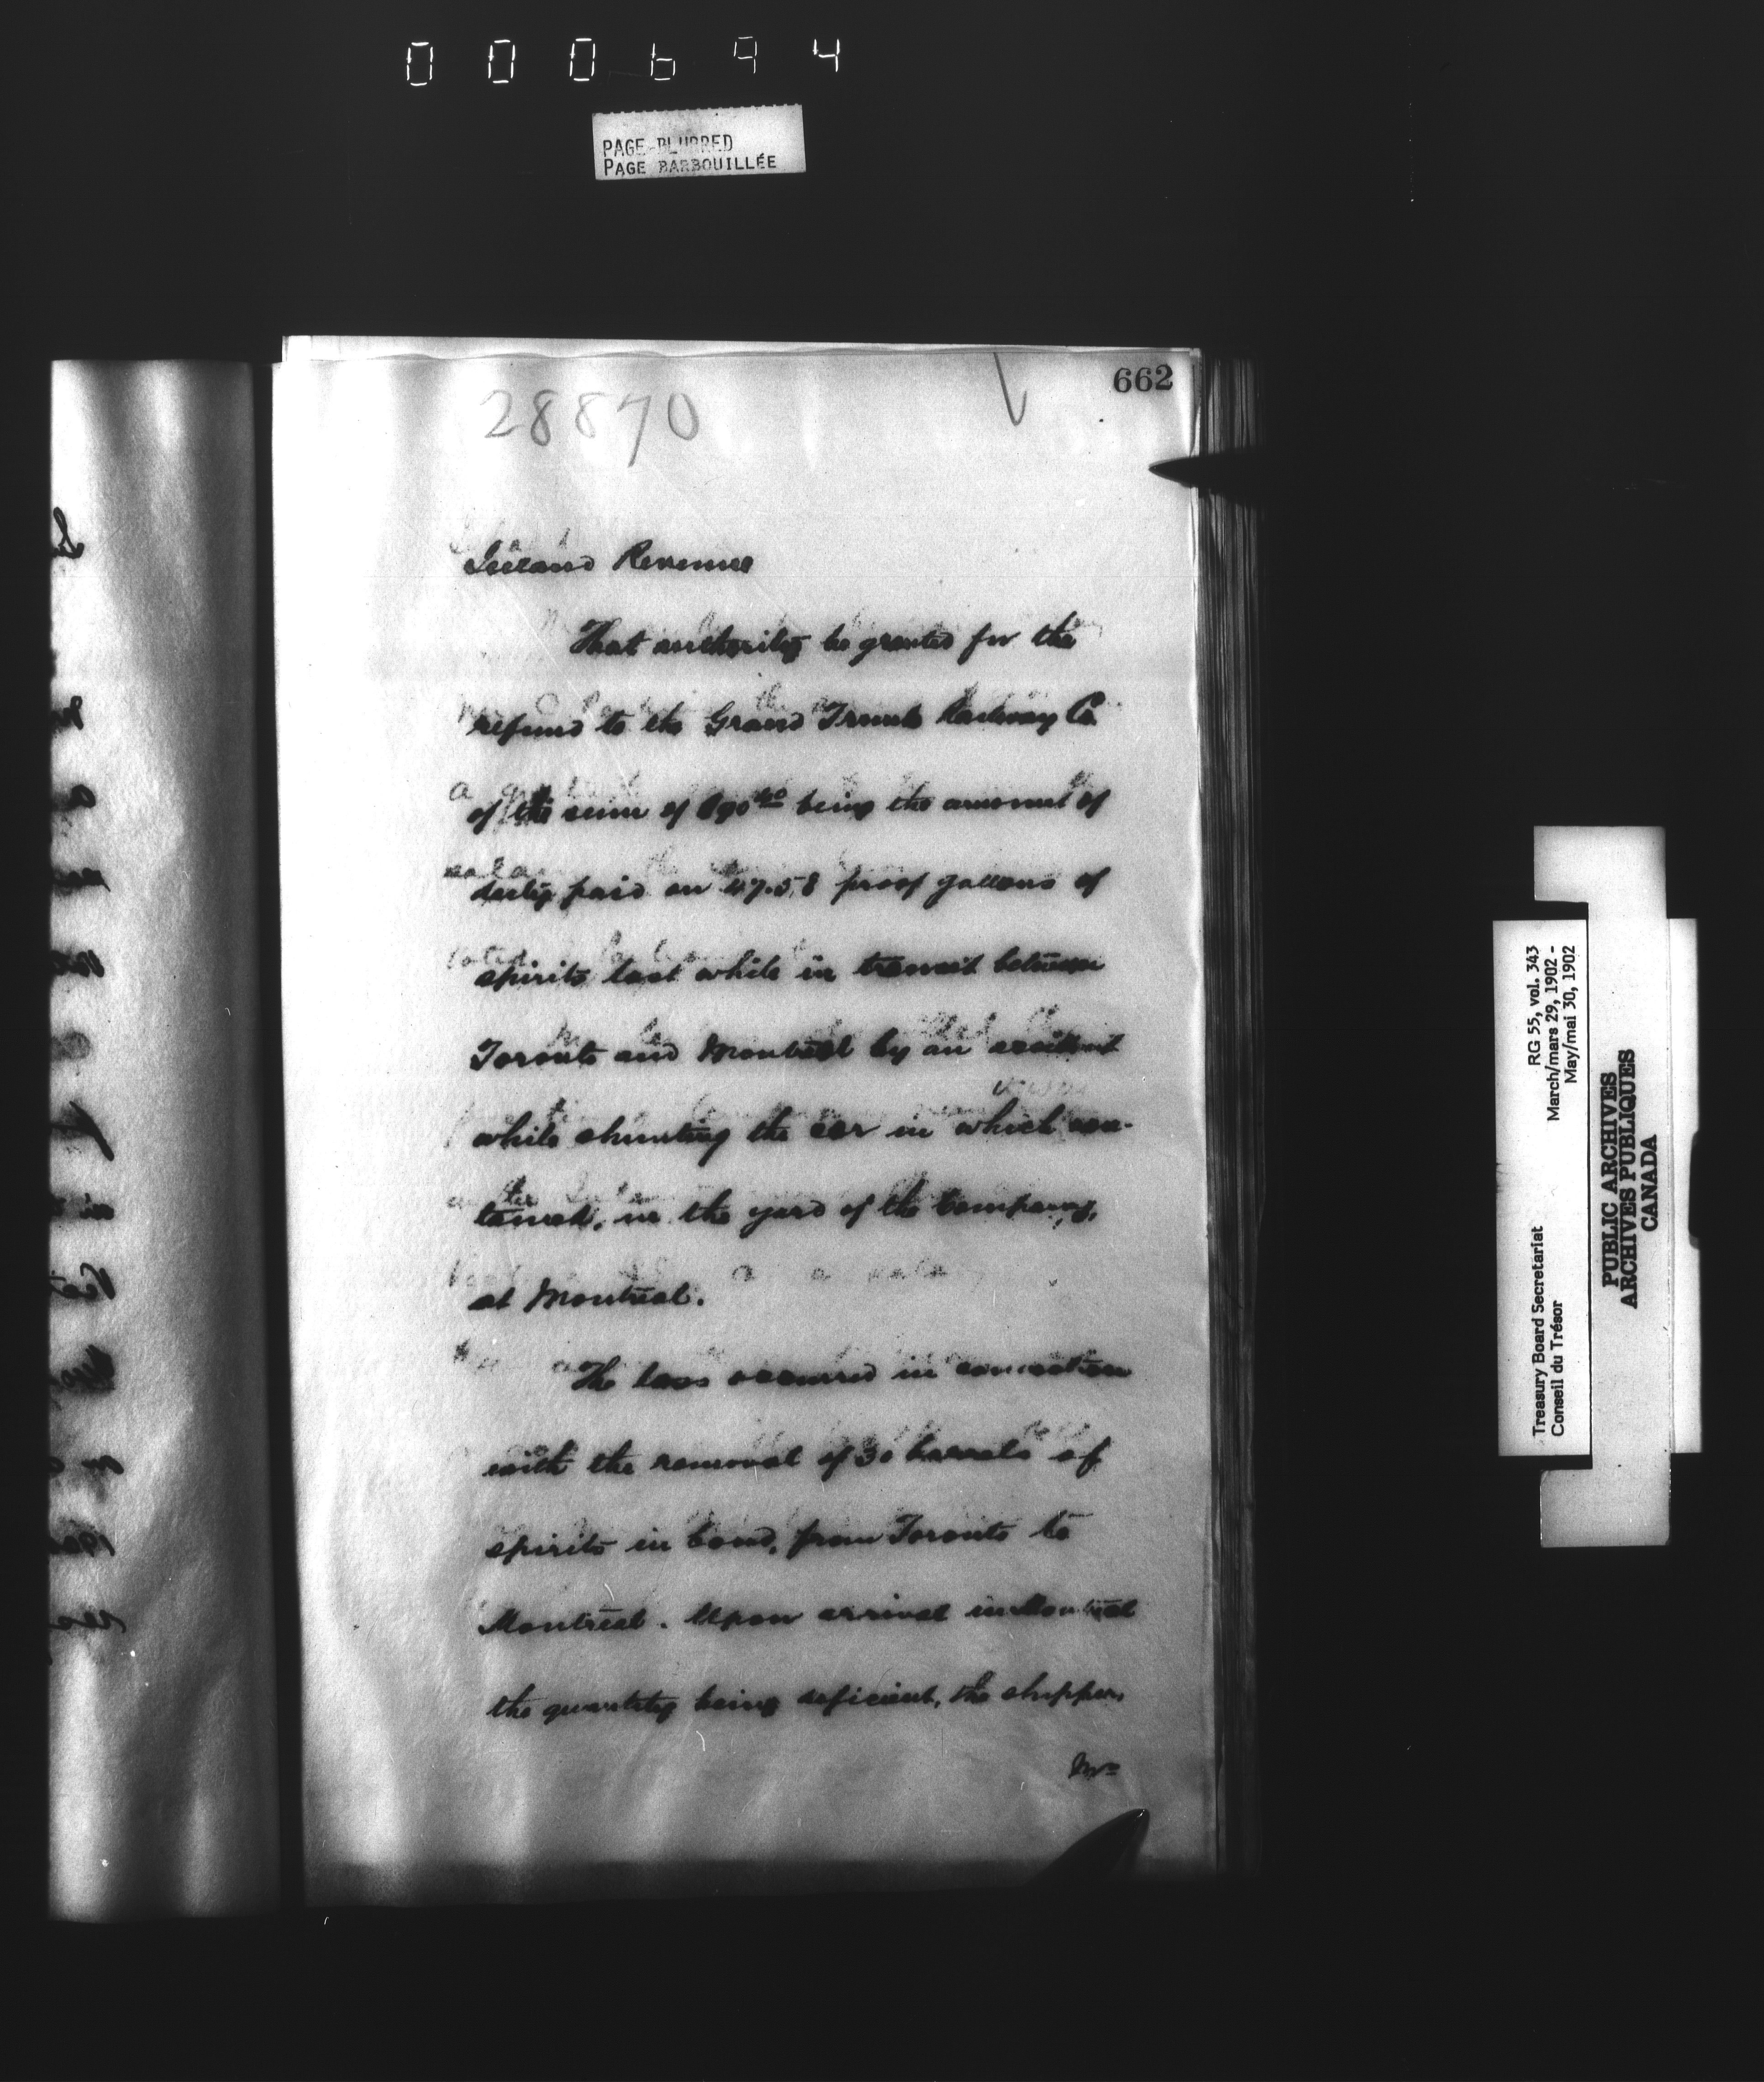 000694
PAGE BLURRED
PAGE BARBOUILLÉE
662
28870
Inland Revenue
That authority be granted for the
refund to the Grand Trunk Railway Co.
of the sum of $90.40 being the amount of
duty paid on 47.58 proof gallons of
spirits lost while in transit between
Toronto and Montreal by an accident
while shunting the car in which con-
tained, in the yard of the Company,
at Montreal.
The loss occurred in connection
with the removal of 30 barrels of
spirits in bond, from Toronto to
Montreal. Upon arrival in Montreal
the quantity being deficient, the shipper,
Treasury Board Secretariat
Conseil du Trésor
RG 55, vol. 343
March/mars 29, 1902 -
May/mai 30, 1902
PUBLIC ARCHIVES
ARCHIVES PUBLIQUES
CANADA